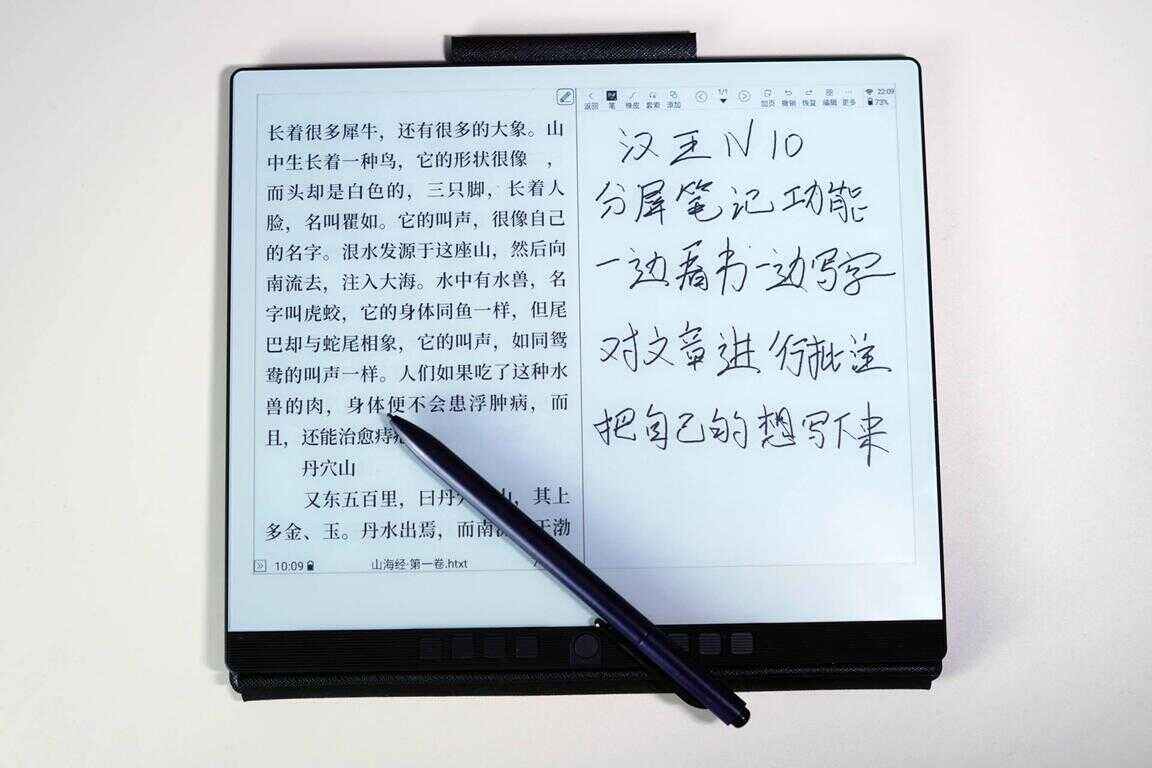 长着很多犀牛，还有很多的大象。山
中生长着一种鸟，它的形状很像　，
而头却是白色的，三只脚，长着人
脸，名叫瞿如。它的叫声，很像自己
的名字。泿水发源于这座山，然后向
南流去，注入大海。水中有水兽，名
字叫虎蛟，它的身体同鱼一样，但尾
巴却与蛇尾相象，它的叫声，如同鸳
鸯的叫声一样。人们如果吃了这种水
兽的肉，身体便不会患浮肿病，而
且，还能治愈痔
丹穴山
又东五百里，曰丹穴 山，其上
多金、玉。丹水出焉，而南 于渤
10:09 山海经·第一卷.htxt
返回 笔 橡皮 套索 添加 1/1 加页 撤销 恢复 编辑 更多 22:09 73%
汉王N10
分屏笔记功能
一边看书一边写字
对文章进行批注
把自己的想写下来